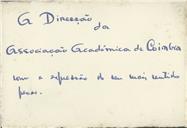 A Direcção
da
Associação Académica de Coimbra
com a expressão do seu mais sentido
pesar.